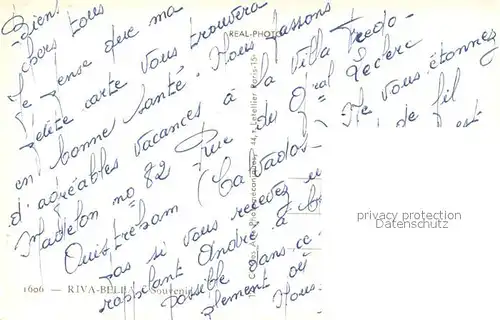 Bien
chers tous
Je pense que ma
petite carte vous trouvera
en bonne santé. Nous passons
d'agréables vacances à la villa Fredo-
Madelon no 82 Rue du Gral Leclerc
Ouistreham (Calvados-
Ne vous étonnez
pas si vous recevez
de fil
rappelant André à
possible dans ce
plement où
Nous
REAL-PHOTO
44, r. Letellier, Paris-15
1606 — RIVA-BELLA Souvenir
privacy protection
Datenschutz